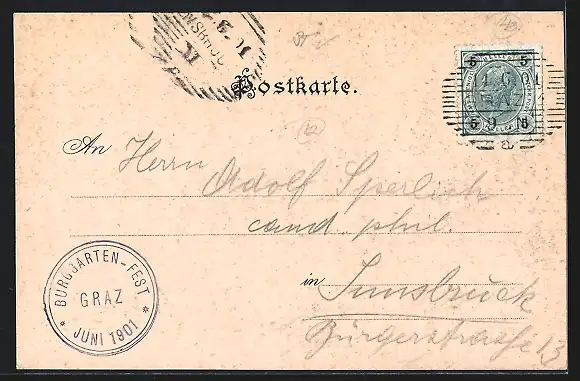 Postkarte.
An Herrn
Adolf Sperlich
cand. phil.
in Innsbruck
Bürgerstrasse 13
BURGGARTEN-FEST
GRAZ
* JUNI 1901 *
5 5
GRAZ
5 5